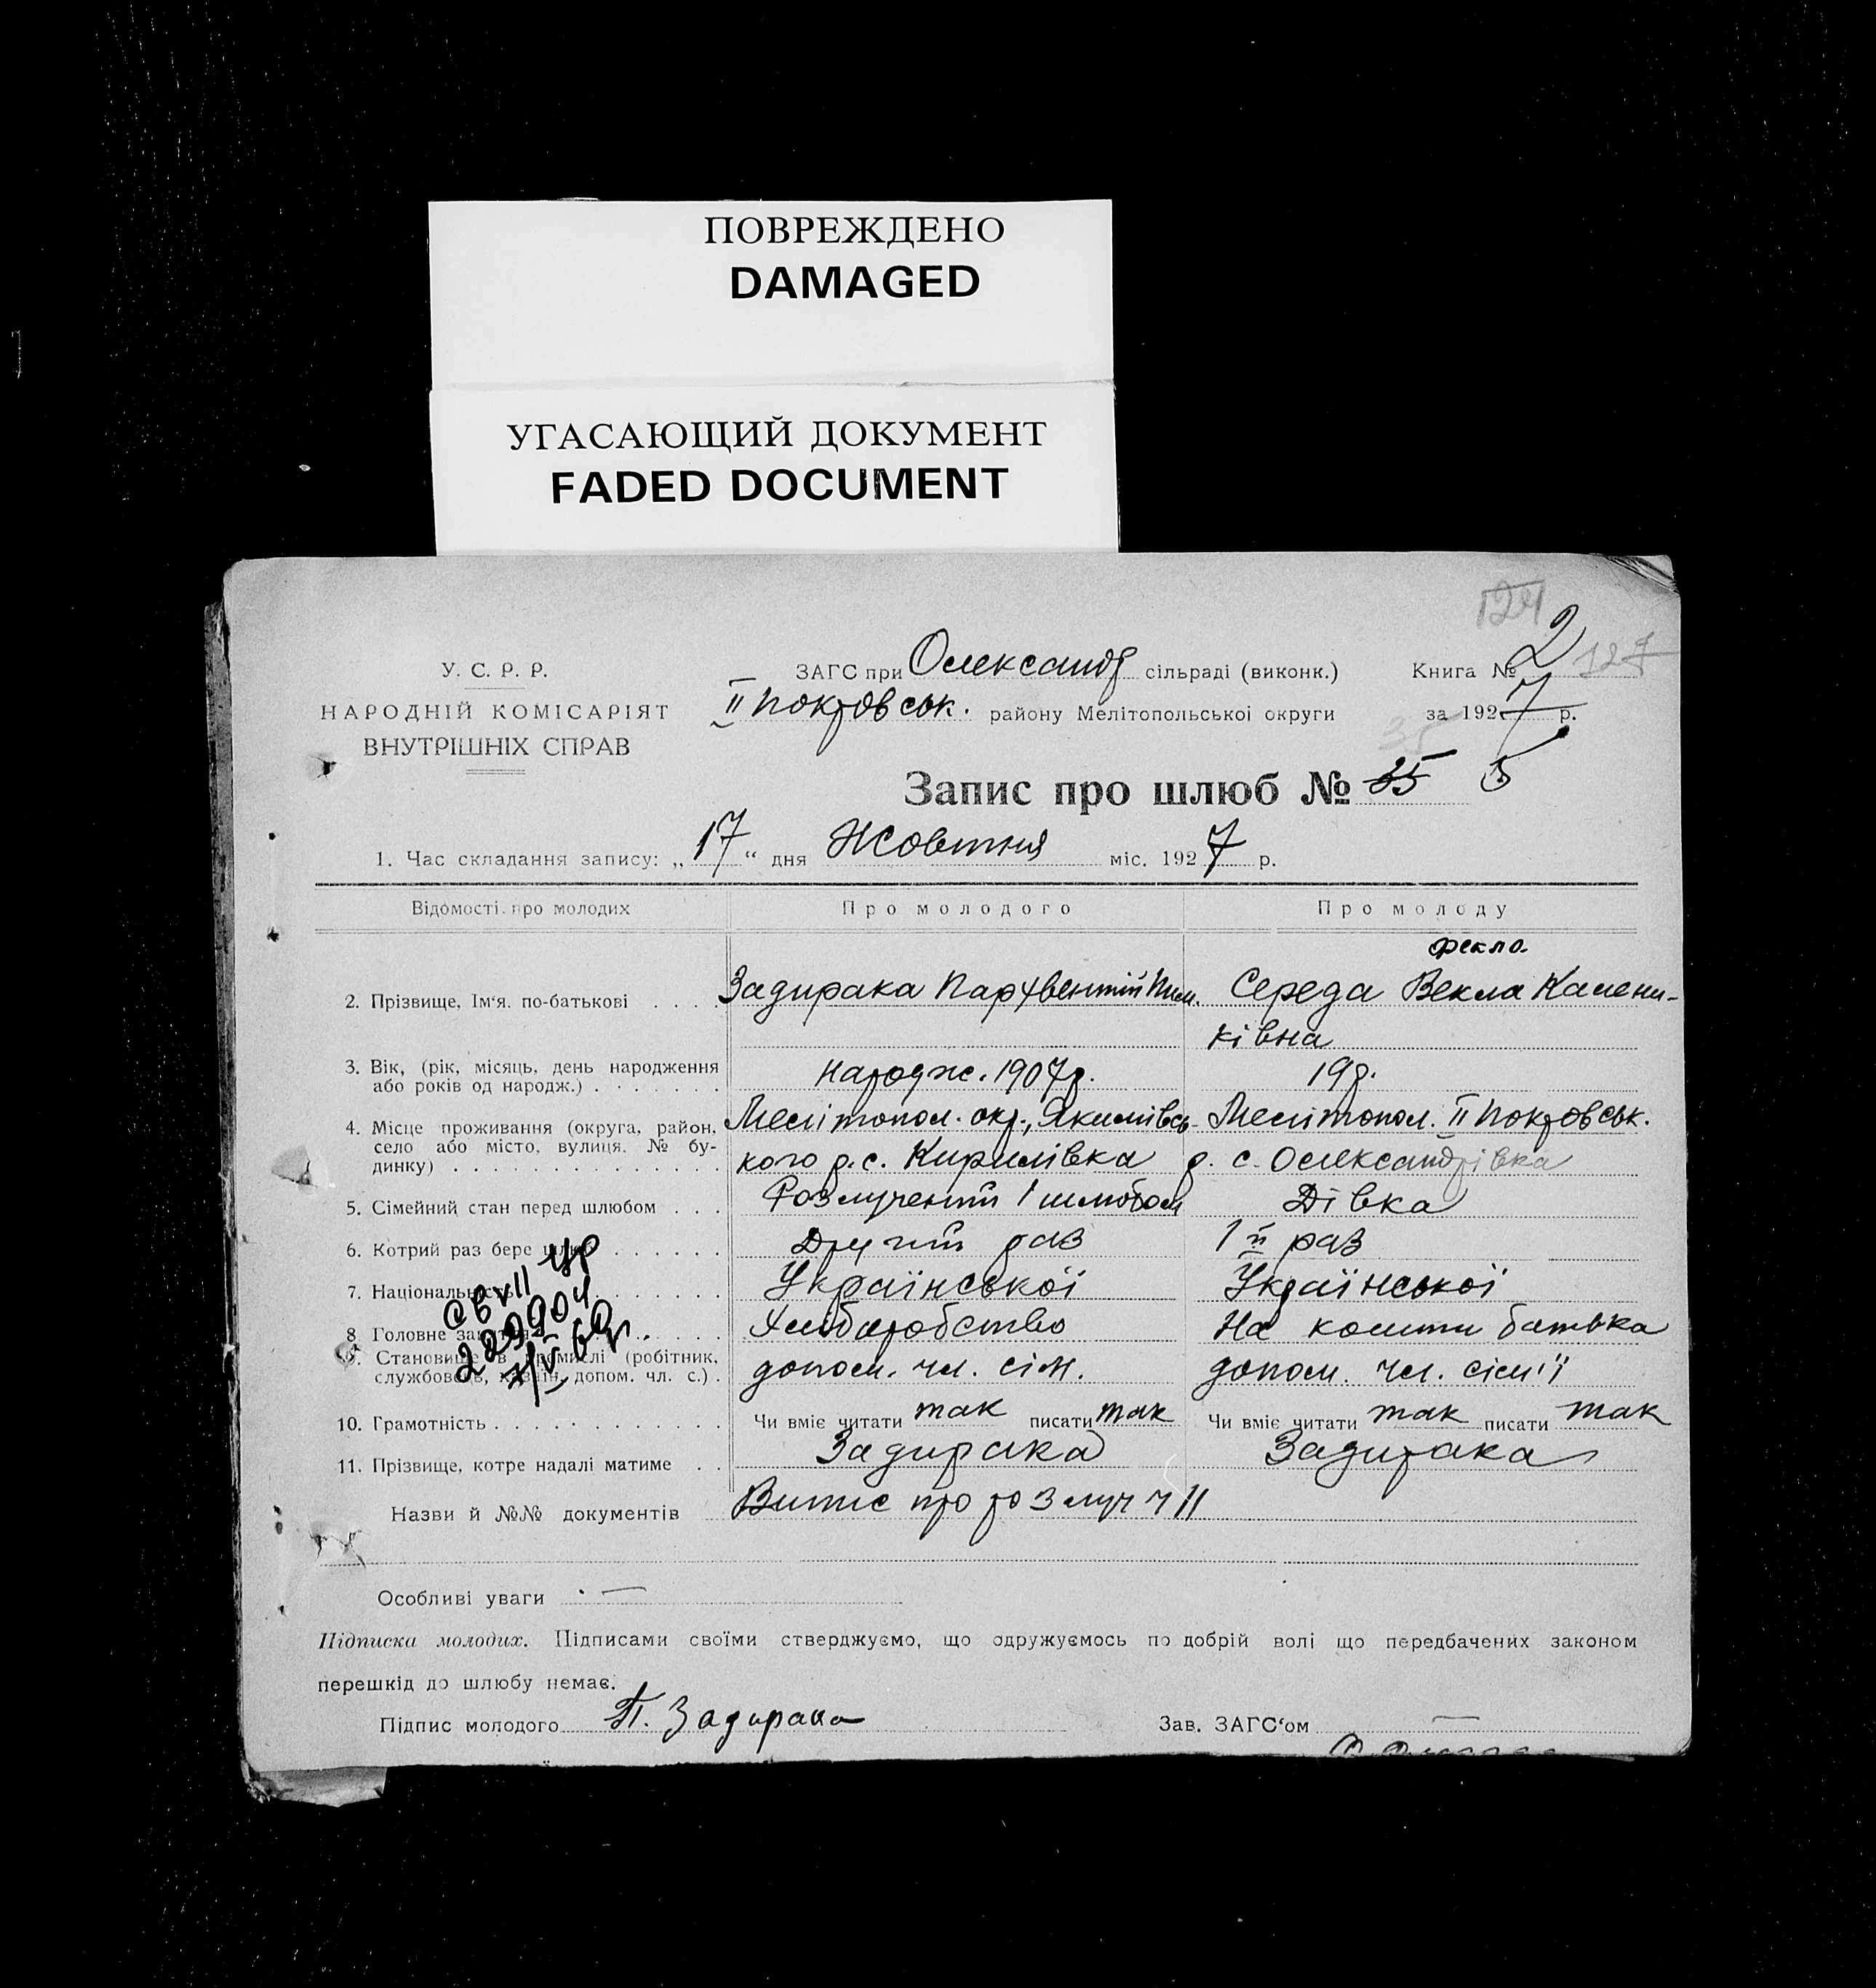 ПОВРЕЖДЕНО
DAMAGED
УГАСАЮЩИЙ ДОКУМЕНТ
FADED DOCUMENT
124
127
У. С. Р. Р.
НАРОДНІЙ КОМІСАРІЯТ
ВНУТРІШНІХ СПРАВ
ЗАГС при Олександр сільраді (виконк.)
Книга № 2
II Покровськ. району Мелітопольської округи
за 1927 р.
35
Запис про шлюб № 35 5
1. Час складання запису: „ 17 “ дня Жовтня міс. 1927 р.
Відомості про молодих Про молодого Про молоду
Фекла
2. Прізвище, Ім‘я, по-батькові . . . Задирака Пархвентій Пим. Середа Векла Калени-
ківна
3. Вік, (рік, місяць, день народження
або років од народж.) . . . . . . . народж. 1907 р. 19 р.
4. Місце проживання (округа, район,
село або місто, вулиця, № бу-
динку) . . . . . . . . . . . . . .
Мелітопол. окр., Якимівсь-
кого р. с. Кирилівка
Мелітопол. II Покровськ.
р. с. Олександрівка
5. Сімейний стан перед шлюбом . . . Розлучений 1 шлюбом Дівка
6. Котрий раз бере шлюб . . . . . . Другий раз 1й раз
7. Національність . . . . . . . Української Української
8. Головне заняття . . . . . Хліборобство На кошти батька
9. Становище в промислі (робітник,
службовець, хазяїн, допом. чл. с.) . допом. чл. сім. допом. чл. сім'ї
229904
10. Грамотність . . . . . . . . . . . . Чи вміє читати так писати так Чи вміє читати так писати так
11. Прізвище, котре надалі матиме . . Задирака Задирака
Назви й №№ документів Витис про розлуч ч 11
Особливі уваги —
Підписка молодих. Підписами своїми стверджуємо, що одружуємось по добрій волі що передбачених законом
перешкід до шлюбу немає.
Підпис молодого П. Задирака Зав. ЗАГС‘ом —